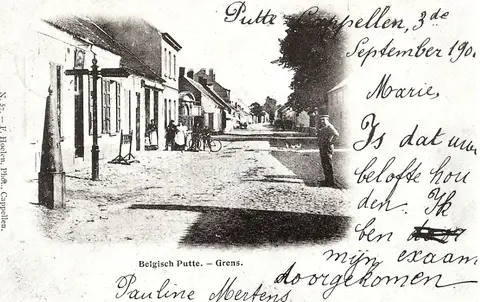 Putte Cappellen, 3de
September 190
Marie,
Is dat uw
belofte hou
den. Ik
ben
mijn exaam
doorgekomen
Pauline Mertens.
Belgisch Putte. – Grens.
N. 51. – F. Hoelen, Phot., Cappellen.